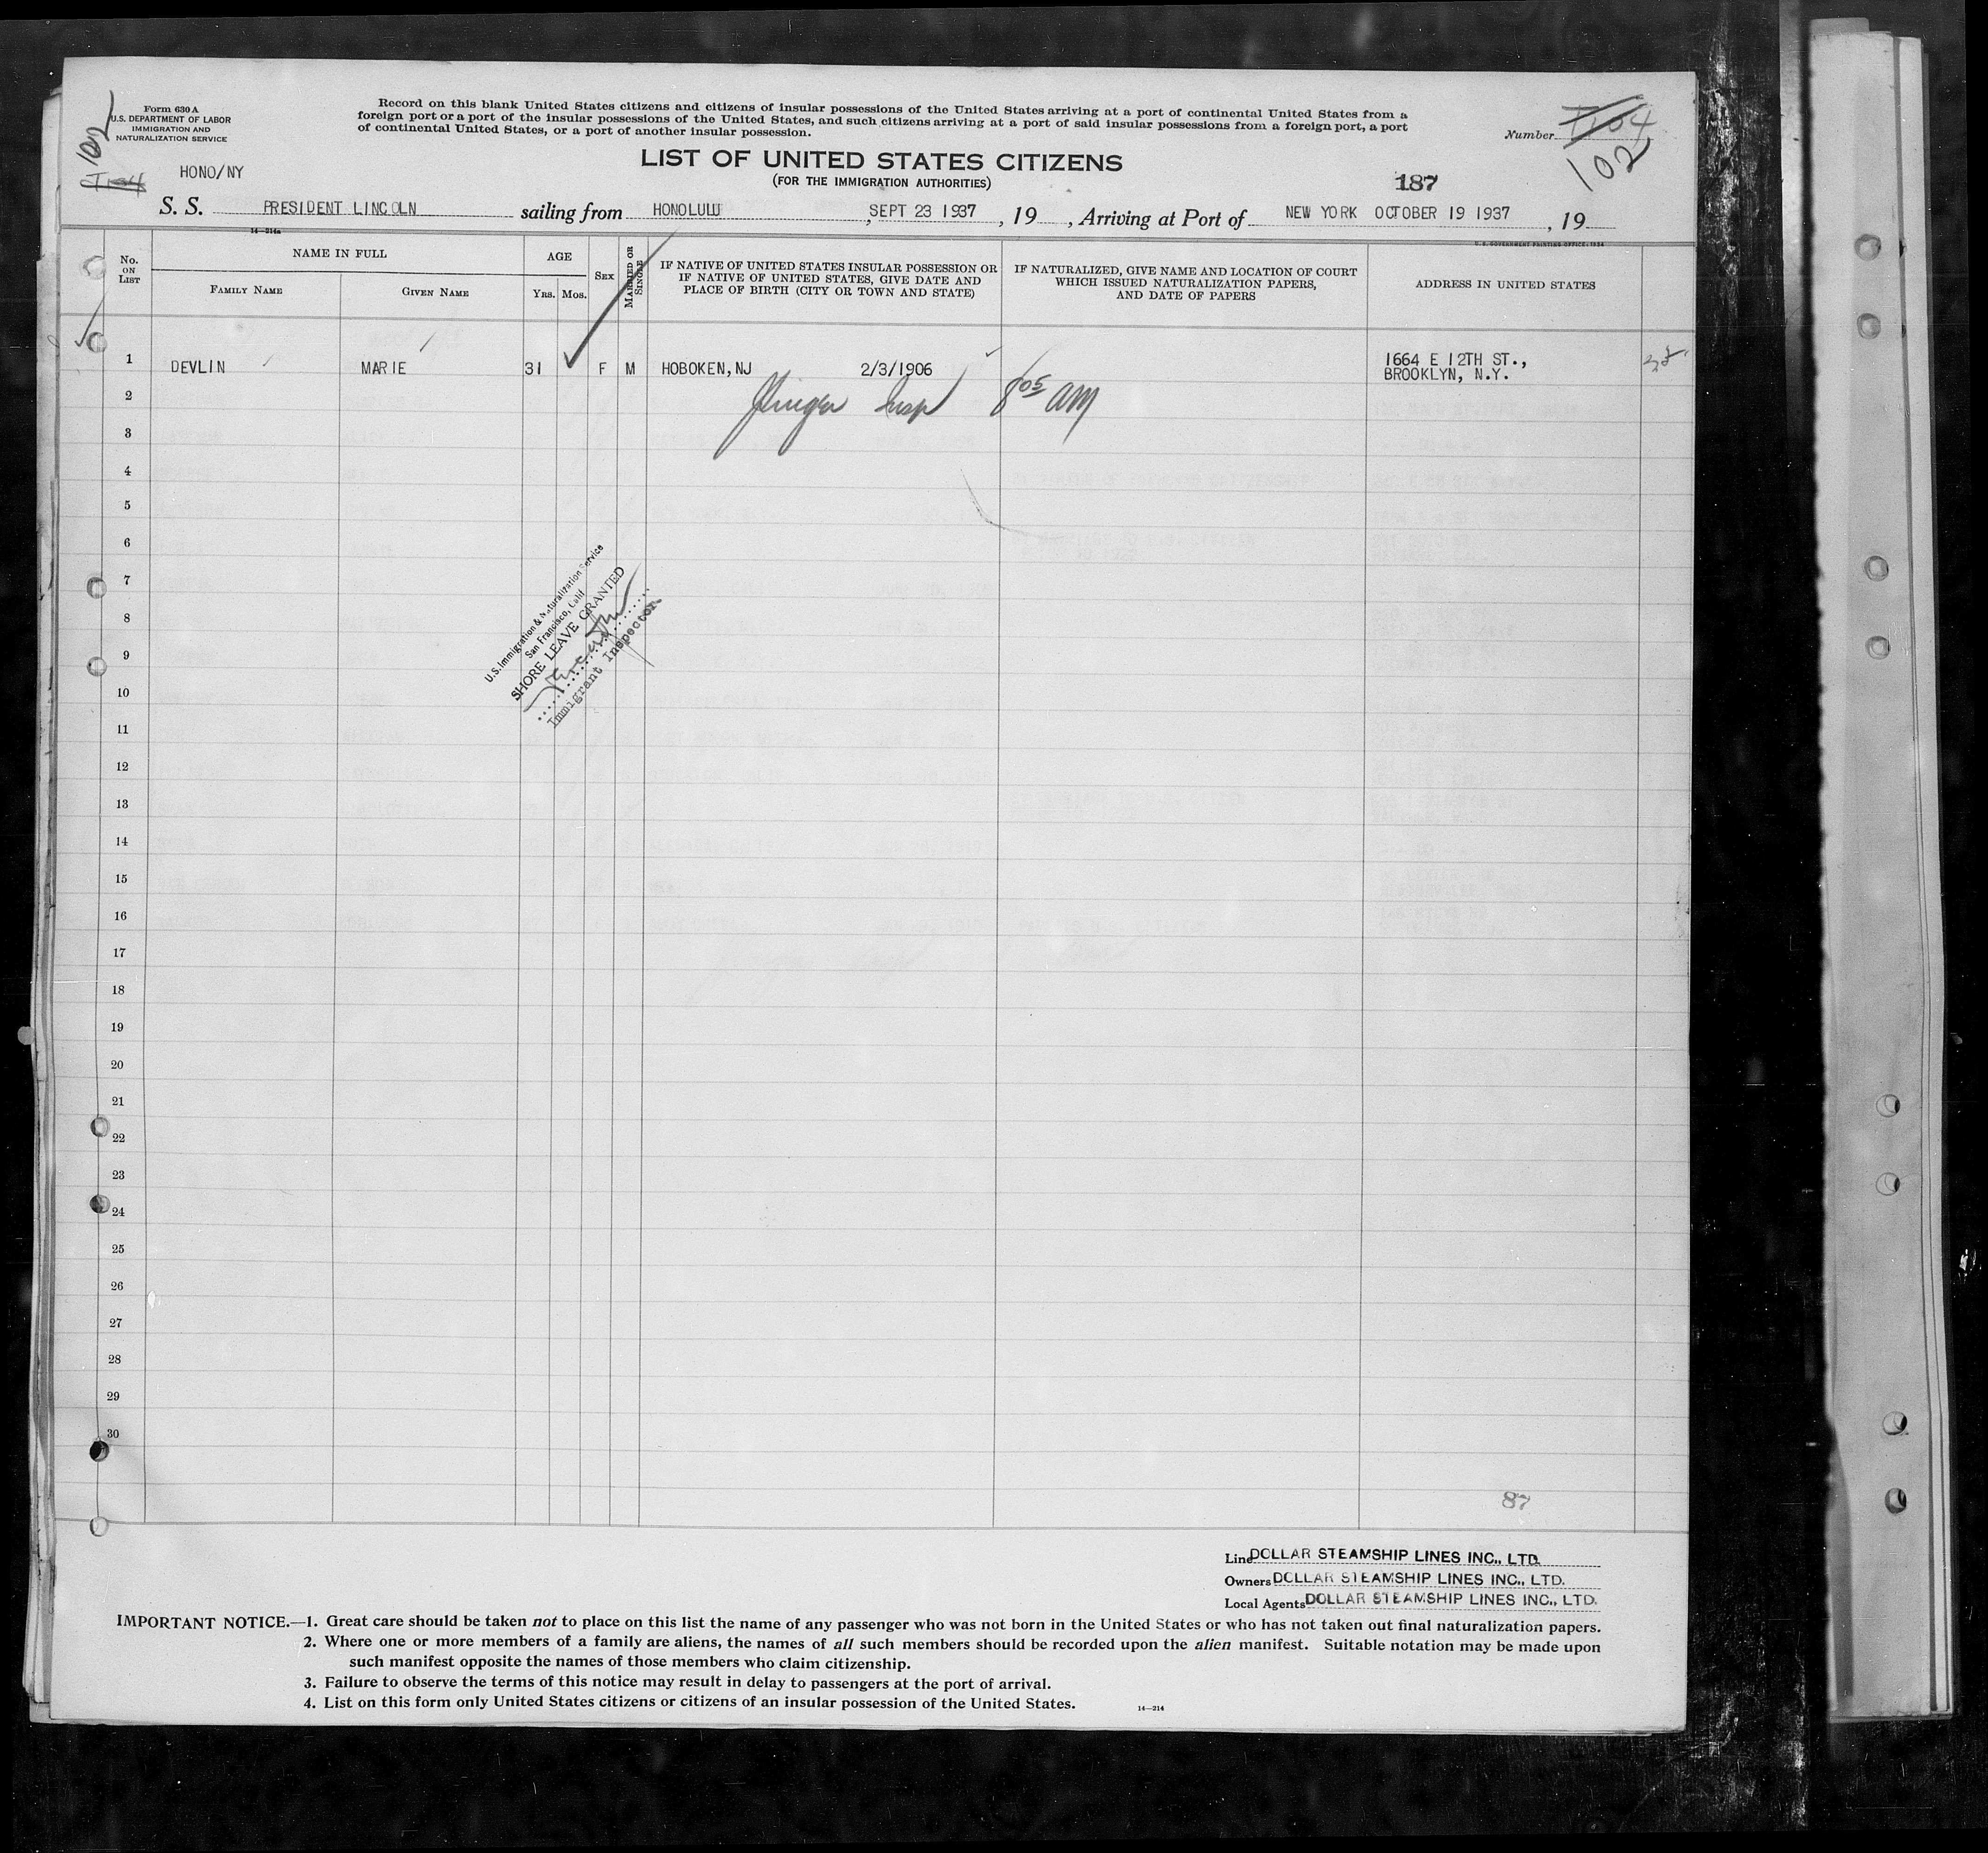 Form 630 A
U.S. DEPARTMENT OF LABOR
IMMIGRATION AND
NATURALIZATION SERVICE
102
Record on this blank United States citizens and citizens of insular possessions of the United States arriving at a port of continental United States from a
foreign port or a port of the insular possessions of the United States, and such citizens arriving at a port of said insular possessions from a foreign port, a port
of continental United States, or a port of another insular possession.
Number
102
LIST OF UNITED STATES CITIZENS
(FOR THE IMMIGRATION AUTHORITIES)
HONO/NY
187
S. S. PRESIDENT LINCOLN sailing from HONOLULU, SEPT 23 1937, 19, Arriving at Port of NEW YORK OCTOBER 19 1937, 19
14—214a
U. S. GOVERNMENT PRINTING OFFICE: 1934
No. ON LIST
NAME IN FULL
FAMILY NAME
GIVEN NAME
AGE
YRS.
MOS.
SEX
MARRIED OR SINGLE
IF NATIVE OF UNITED STATES INSULAR POSSESSION OR
IF NATIVE OF UNITED STATES, GIVE DATE AND
PLACE OF BIRTH (CITY OR TOWN AND STATE)
IF NATURALIZED, GIVE NAME AND LOCATION OF COURT
WHICH ISSUED NATURALIZATION PAPERS,
AND DATE OF PAPERS
ADDRESS IN UNITED STATES
1 DEVLIN MARIE 31 F M HOBOKEN, NJ 2/3/1906 1664 E 12TH ST.,
BROOKLYN, N.Y.
2
Insp 8 05 AM
3
4
5
6
7
8
9
10
11
12
13
14
15
16
17
18
19
20
21
22
23
24
25
26
27
28
29
30
U.S. Immigration & Naturalization Service
San Francisco, Calif
SHORE LEAVE GRANTED
Immigrant Inspector
87
Line DOLLAR STEAMSHIP LINES INC., LTD.
Owners DOLLAR STEAMSHIP LINES INC., LTD.
Local Agents DOLLAR STEAMSHIP LINES INC., LTD.
IMPORTANT NOTICE.—1. Great care should be taken not to place on this list the name of any passenger who was not born in the United States or who has not taken out final naturalization papers.
2. Where one or more members of a family are aliens, the names of all such members should be recorded upon the alien manifest. Suitable notation may be made upon
such manifest opposite the names of those members who claim citizenship.
3. Failure to observe the terms of this notice may result in delay to passengers at the port of arrival.
4. List on this form only United States citizens or citizens of an insular possession of the United States.
14—214